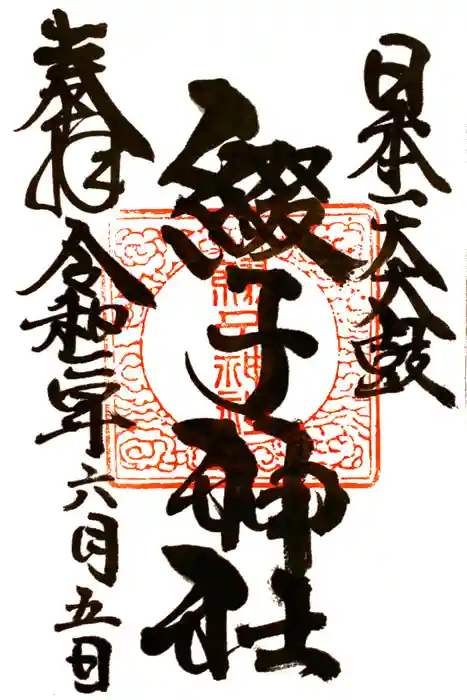 日本一大太鼓
綴子神社
綴子神社
奉拝
令和二年六月五日